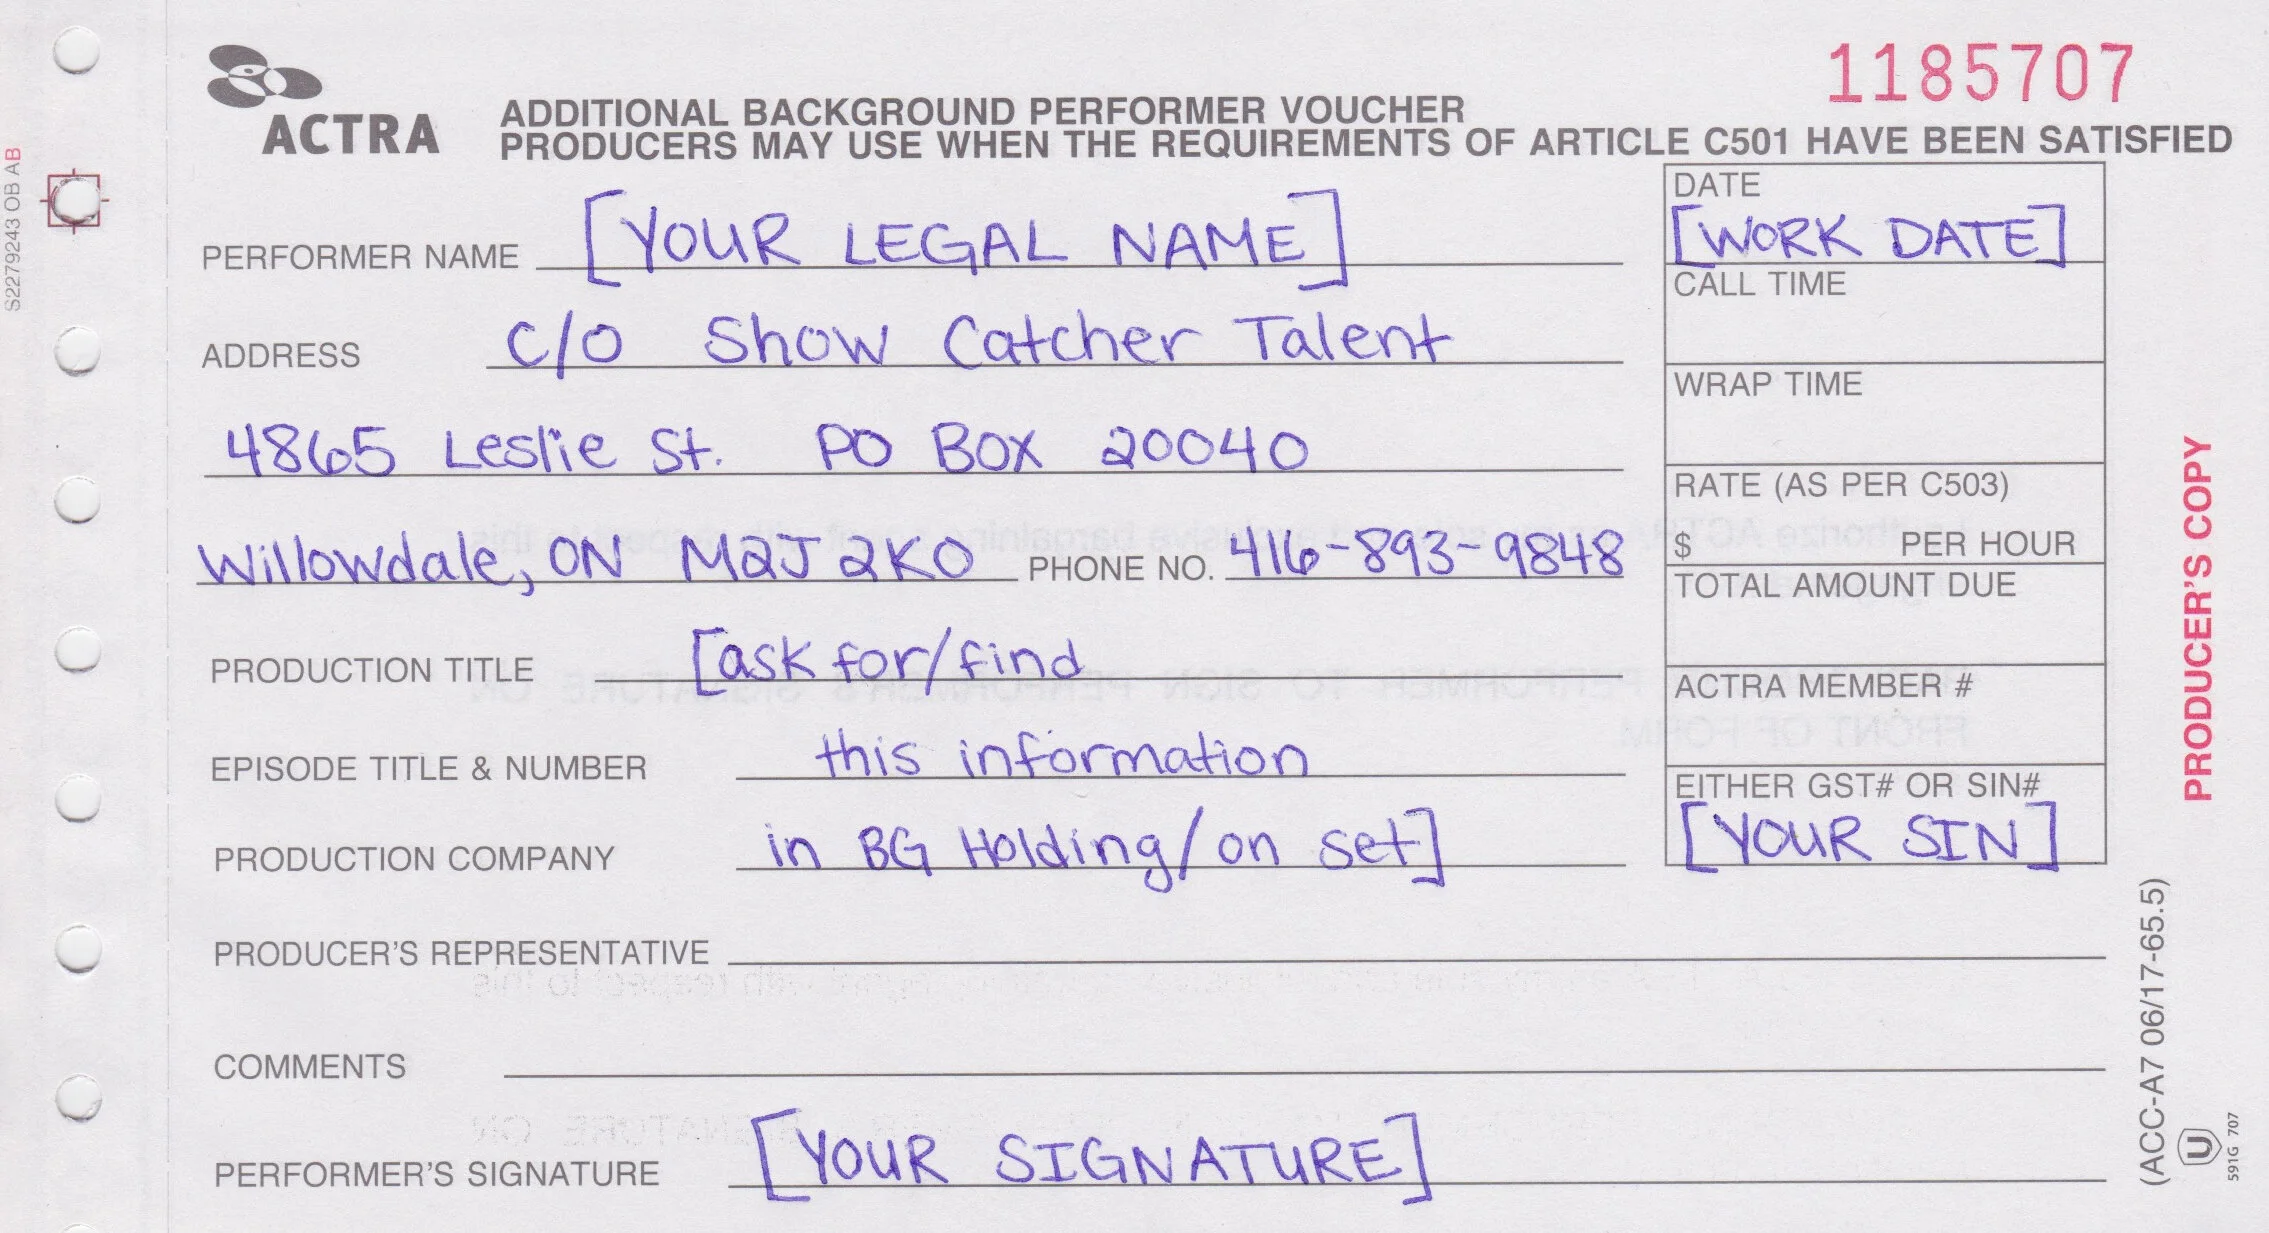 1185707
ACTRA
ADDITIONAL BACKGROUND PERFORMER VOUCHER
PRODUCERS MAY USE WHEN THE REQUIREMENTS OF ARTICLE C501 HAVE BEEN SATISFIED
S2279243 OB AB
PERFORMER NAME [YOUR LEGAL NAME]
ADDRESS c/o Show Catcher Talent
4865 Leslie St. PO BOX 20040
Willowdale, ON M2J 2K0 PHONE NO. 416-893-9848
PRODUCTION TITLE [ask for/find
EPISODE TITLE & NUMBER this information
PRODUCTION COMPANY in BG Holding/on set]
PRODUCER'S REPRESENTATIVE
COMMENTS
PERFORMER'S SIGNATURE [YOUR SIGNATURE]
DATE
[WORK DATE]
CALL TIME
WRAP TIME
RATE (AS PER C503)
$ PER HOUR
TOTAL AMOUNT DUE
ACTRA MEMBER #
EITHER GST# OR SIN#
[YOUR SIN]
PRODUCER'S COPY
(ACC-A7 06/17-65.5)
U
591G 707